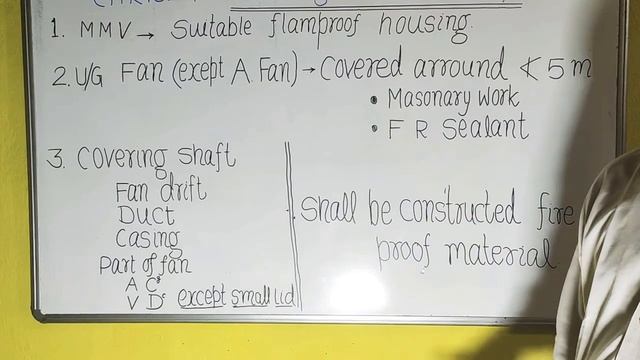 1. MMV → Suitable flamproof housing.
2. U/G Fan (except A Fan) → Covered arround ≮ 5 m
• Masonary work
• F R Sealant
3. Covering shaft
Fan drift
DUCT
Casing
Part of fan
A C^s
V D^s except small lid
Shall be constructed fire
proof material